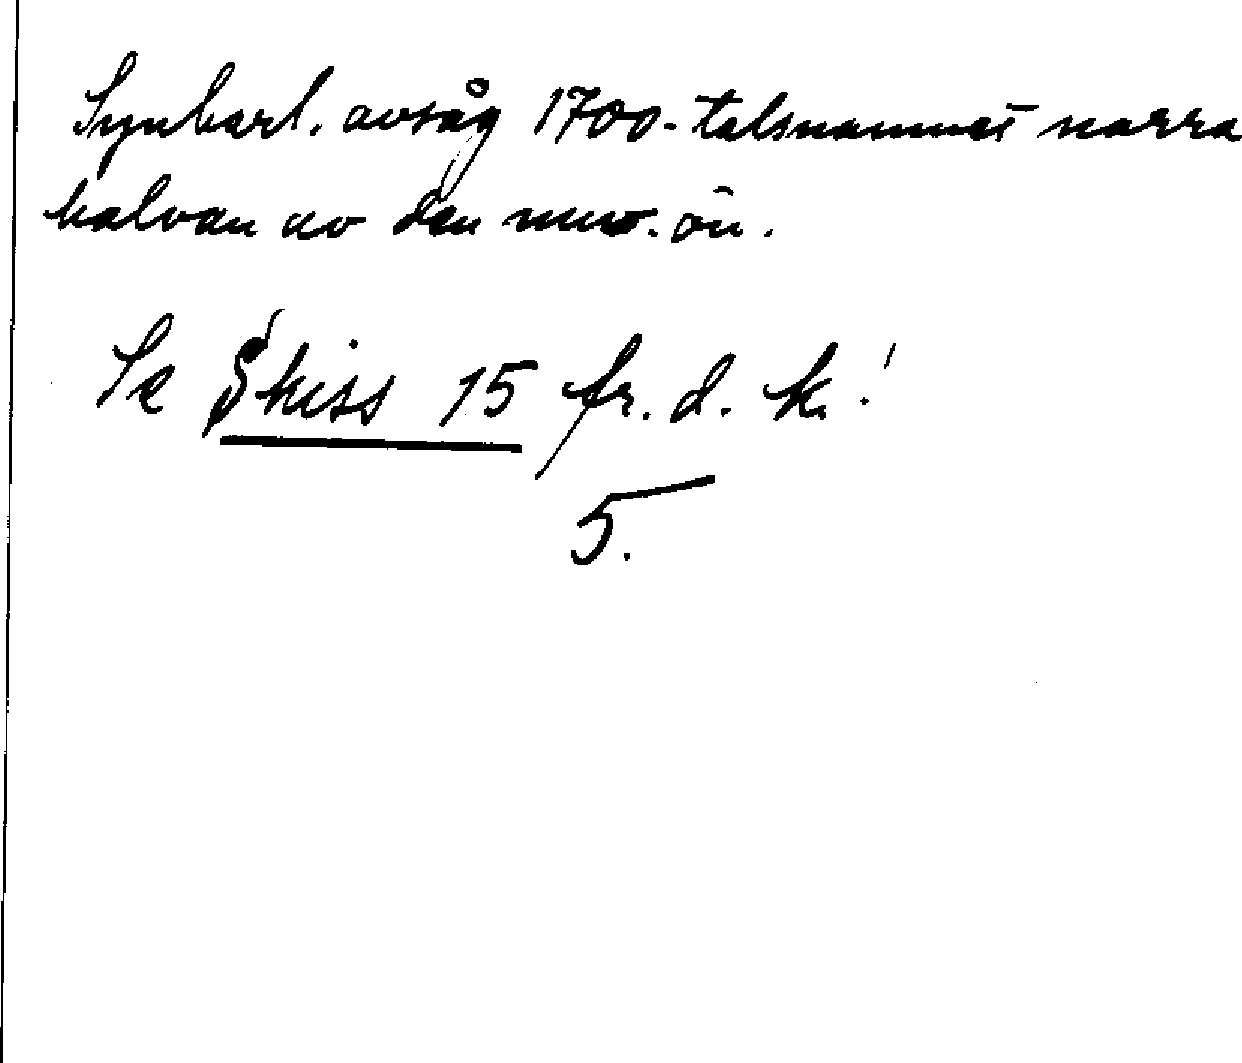 Synbarl. avsåg 1700-talsnamnet norra
halvan av den nuv. ön.
Se Skiss 15 fr. d. k.!
5.